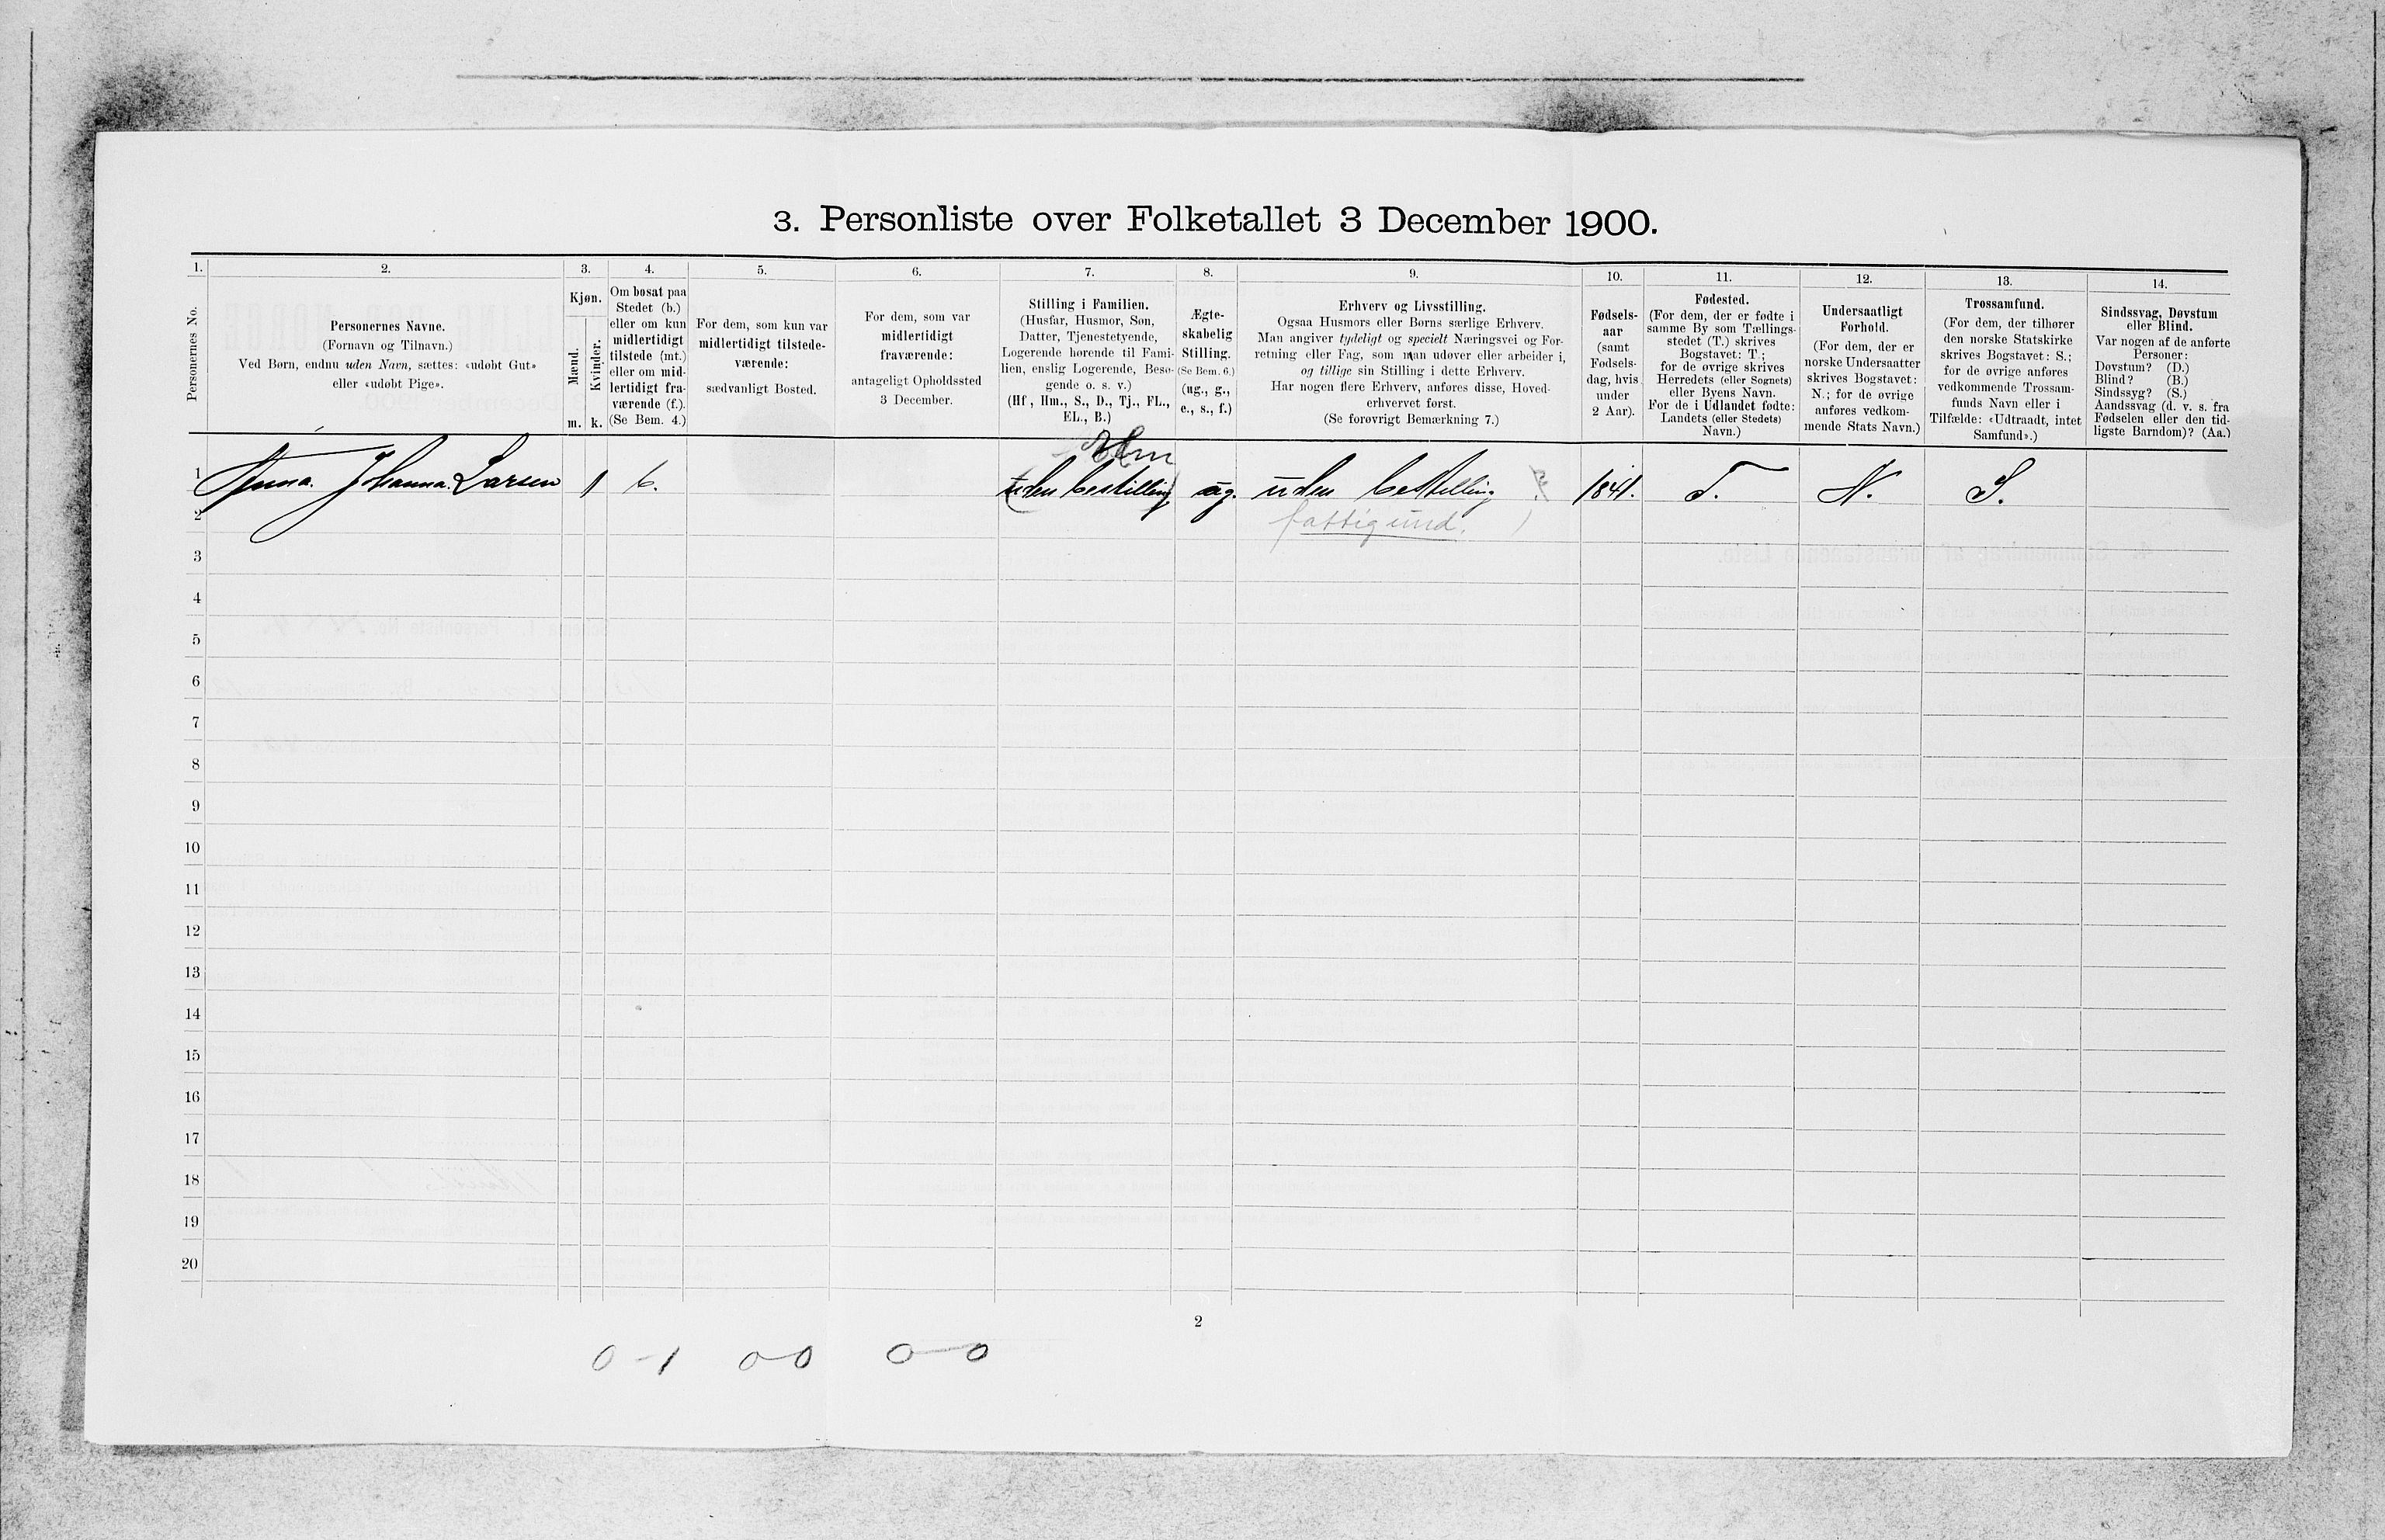 3. Personliste over Folketallet 3 December 1900.
1. 2. 3. 4. 5. 6. 7. 8. 9. 10. 11. 12. 13. 14.
Personernes No.
Personernes Navne.
(Fornavn og Tilnavn.)
Ved Børn, endnu uden Navn, sættes: «udøbt Gut»
eller «udøbt Pige».
Kjøn.
Mænd.
Kvinder.
m. k.
Om bosat paa
Stedet (b.)
eller om kun
midlertidigt
tilstede (mt.)
eller om mid-
lertidigt fra-
værende (f.).
(Se Bem. 4.)
For dem, som kun var
midlertidigt tilstede-
værende:
sædvanligt Bosted.
For dem, som var
midlertidigt
fraværende:
antageligt Opholdssted
3 December.
Stilling i Familien.
(Husfar, Husmor, Søn,
Datter, Tjenestetyende,
Logerende hørende til Fami-
lien, enslig Logerende, Besø-
gende o. s. v.)
(Hf, Hm., S., D., Tj., FL.,
EL., B.)
Ægte-
skabelig
Stilling.
(Se Bem. 6.)
(ug., g.,
e., s., f.)
Erhverv og Livsstilling.
Ogsaa Husmors eller Børns særlige Erhverv.
Man angiver tydeligt og specielt Næringsvei og For-
retning eller Fag, som man udøver eller arbeider i,
og tillige sin Stilling i dette Erhverv.
Har nogen flere Erhverv, anføres disse, Hoved-
erhvervet først.
(Se forøvrigt Bemærkning 7.)
Fødsels-
aar
(samt
Fødsels-
dag, hvis
under
2 Aar).
Fødested.
(For dem, der er fødte i
samme By som Tællings-
stedet (T.) skrives
Bogstavet: T;
for de øvrige skrives
Herredets (eller Sognets)
eller Byens Navn.
For de i Udlandet fødte:
Landets (eller Stedets)
Navn.)
Undersaatligt
Forhold.
(For dem, der er
norske Undersaatter
skrives Bogstavet:
N.; for de øvrige
anføres vedkom-
mende Stats Navn.)
Trossamfund.
(For dem, der tilhører
den norske Statskirke
skrives Bogstavet: S.;
for de øvrige anføres
vedkommende Trossam-
funds Navn eller i
Tilfælde: «Udtraadt, intet
Samfund».)
Sindssvag, Døvstum
eller Blind.
Var nogen af de anførte
Personer:
Døvstum? (D.)
Blind? (B.)
Sindssyg? (S.)
Aandssvag (d. v. s. fra
Fødselen eller den tid-
ligste Barndom)? (Aa.)
Hm
1 Anna. Johanna. Larsen 1 b. uden bestilling ug. uden bestilling 1841. T. N. S.
2 fattigund.
3
4
5
6
7
8
9
10
11
12
13
14
15
16
17
18
19
20
2
0-1 0-0 0-0